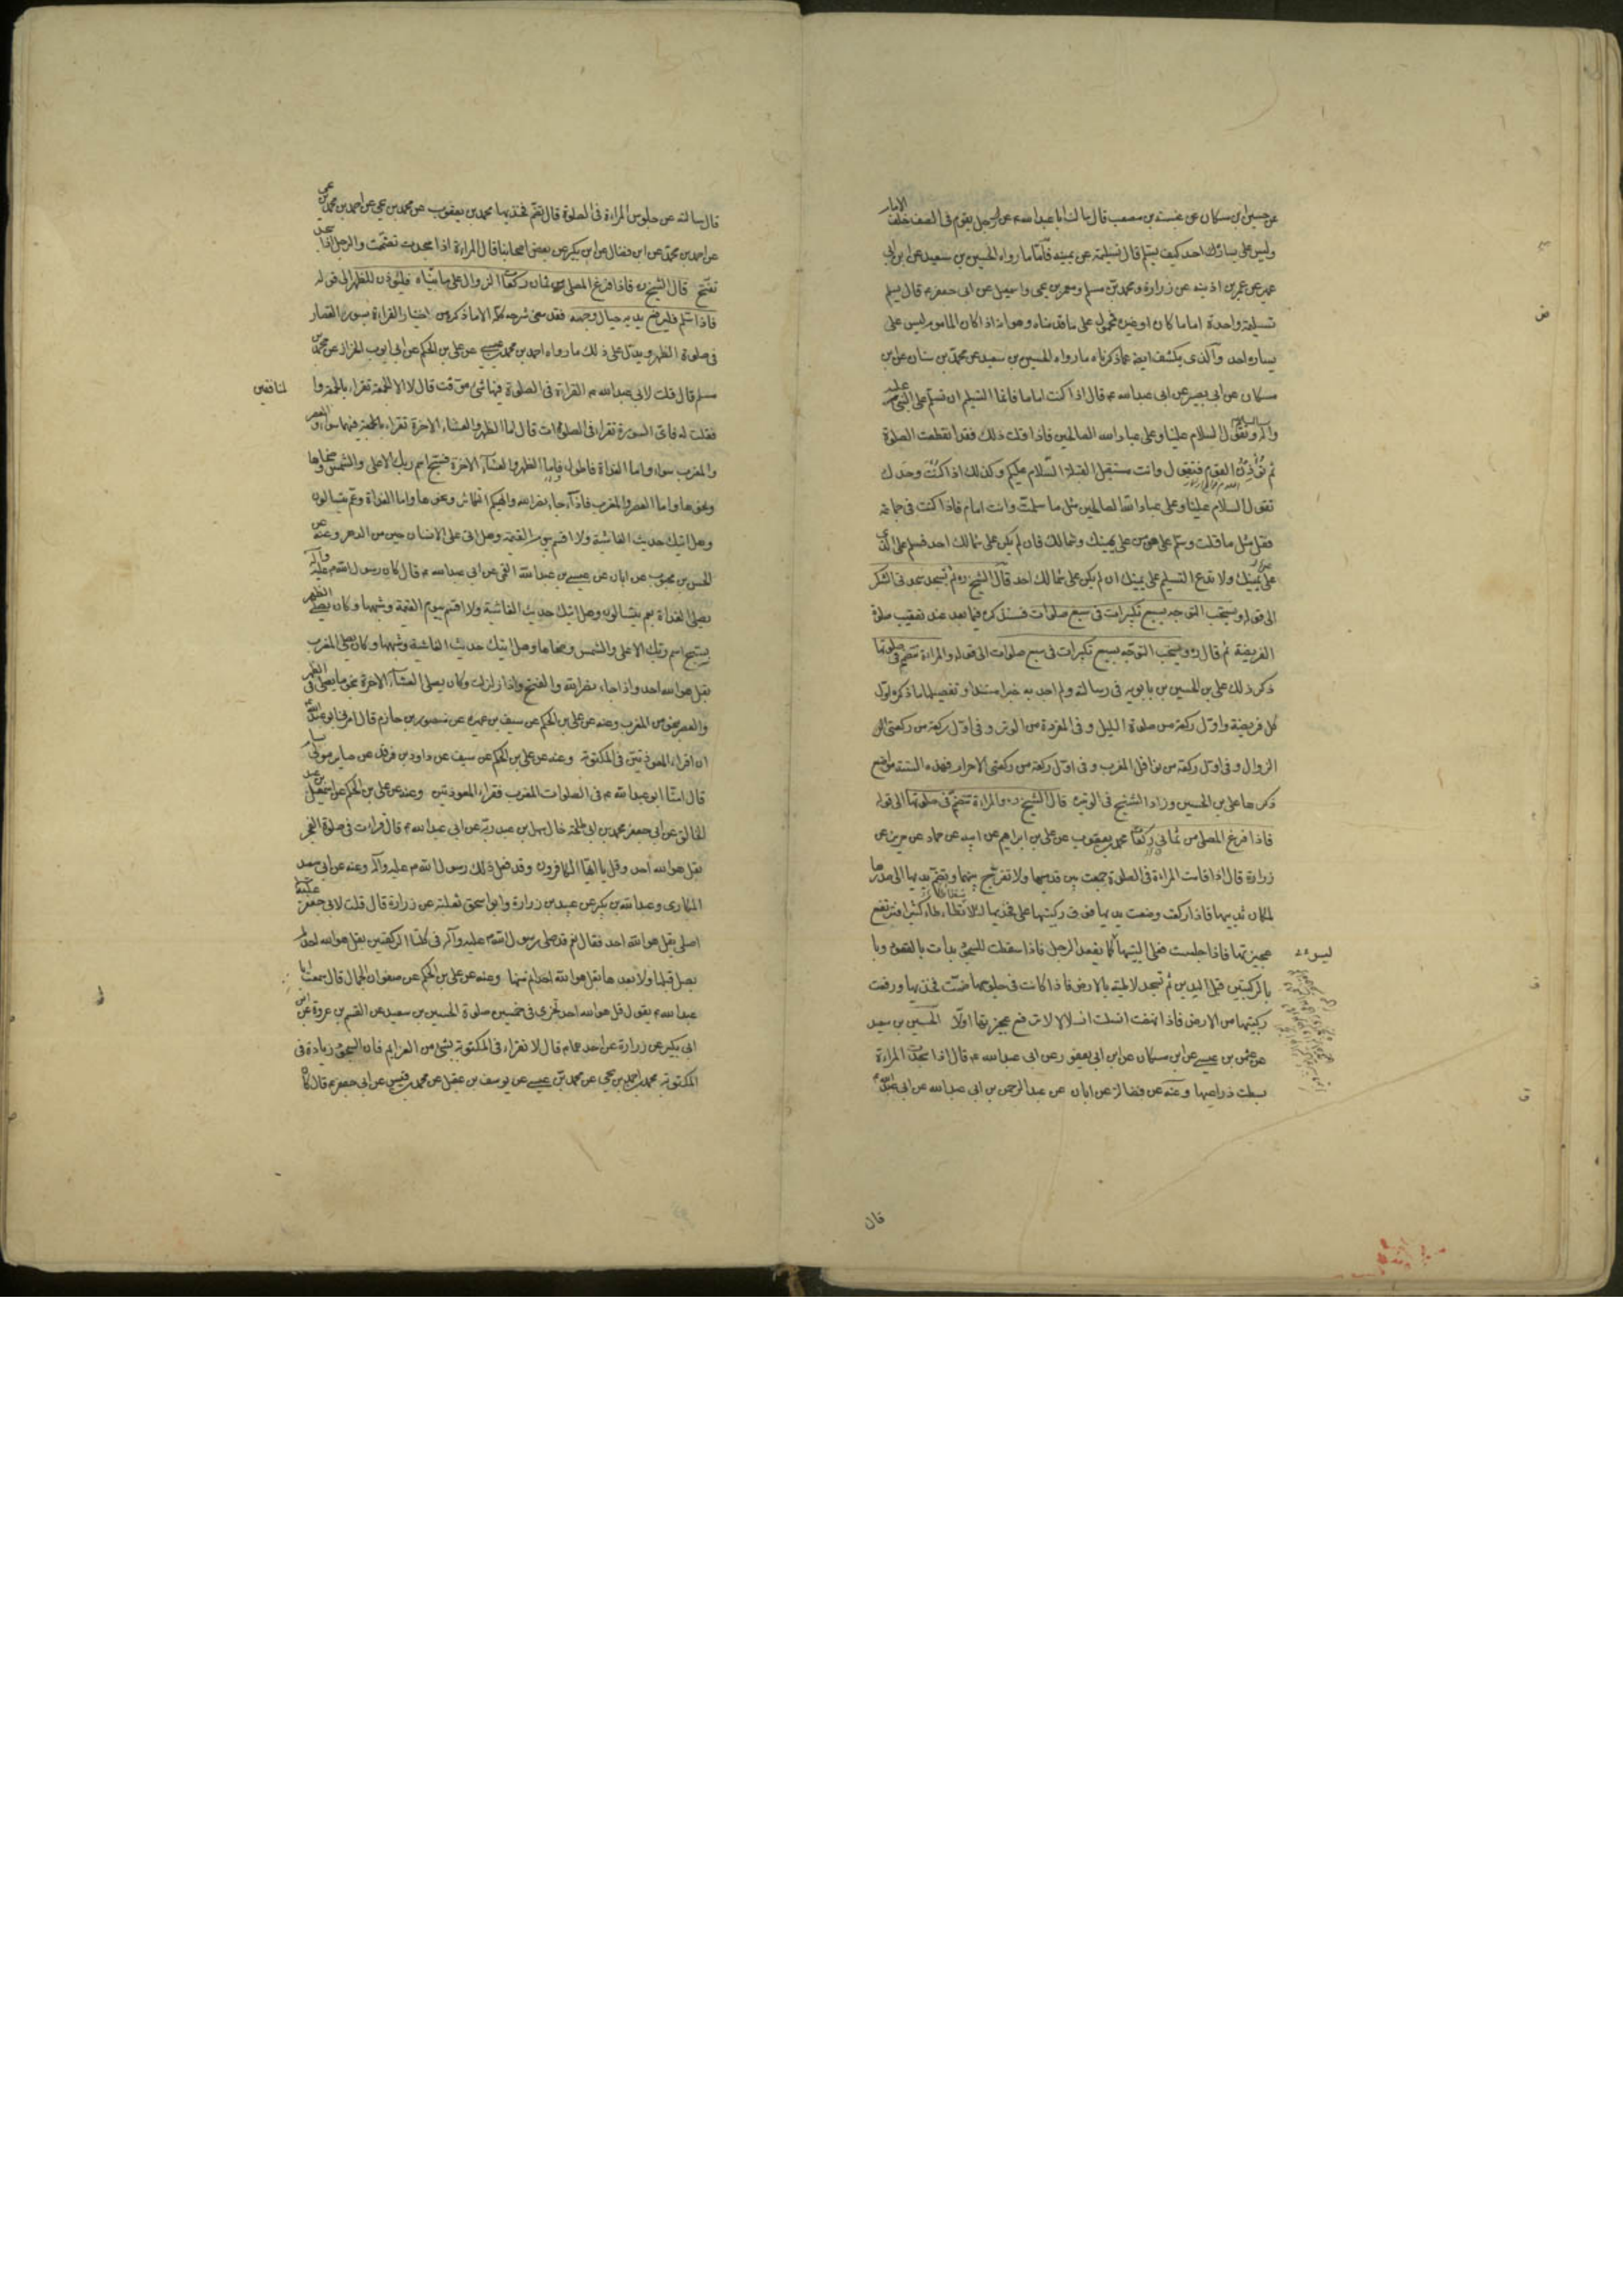 عن حسين ابن مسكان عن عنبسة بن مصعب قال سالت ابا عبد الله عن الرجل يقوم فى الصف خلف الامام
وليس على يساره احد كيف يسلم قال تسليمة عن يمينه فاما ما رواه الحسين بن سعيد عن ابن ابى
عمير عن عمر بن اذينه عن زرارة ومحمد بن مسلم ومعمر بن يحيى واسمعيل عن ابى جعفر م قال يسلم
تسليمة واحدة اماما كان او غيره محمول على ما قدمناه وهو انه اذا كان الماموم ليس على
يساره احد والذى يكشف ايضا عما ذكرناه ما رواه الحسين بن سعيد عن محمد بن سنان عن ابن
مسكان عن ابى بصير عن ابى عبد الله م قال اذا كنت اماما فانما التسليم ان تسلم على النبى عليه
واله وتقول السلام علينا وعلى عباد الله الصالحين فاذا قلت ذلك فقد انقطعت الصلوة
ثم تؤذن القوم فتقول وانت مستقبل القبلة السلام عليكم وكذلك اذا كنت وحدك
تقول السلام علينا وعلى عباد الله الصالحين مثل ما سلمت وانت امام فاذا كنت فى جماعة
فقل مثل ما قلت وسلم على من على يمينك وشمالك فان لم يكن على شمالك احد فسلم على الذين
على يمينك ولا تدع التسليم على يمينك ان لم يكن على شمالك احد قال الشيخ ره ثم تسجد سجدتى الشكر
الى قوله ويستحب التوجه بسبع تكبيرات فى سبع صلوات فسنذكره فيما بعد عند تعقيب صلوة
الفريضة ثم قال ره ويستحب التوجه بسبع تكبيرات فى سبع صلوات الى قوله والمراءة تنضم فى صلوتها
ذكر ذلك على بن الحسين بن بابويه فى رسالته ولم اجد به خبرا مسندا وتفصيلها ما ذكره اول
كل فريضة واول ركعة من صلوة الليل وفى المفردة من الوتر وفى اول ركعة من ركعتى
الزوال وفى اول ركعة من نوافل المغرب وفى اول ركعة من ركعتى الاحرام فهذه الستة مواضع
ذكرها على بن الحسين وزاد الشيخ فى الوتيرة قال الشيخ ره والمراءة تنضم فى صلوتها الى قوله
فاذا فرغ المصلى من ثمانى ركعات محمد بن يعقوب عن على بن ابراهيم عن ابيه عن حماد عن حريز عن
زرارة قال اذا قامت المراءة فى الصلوة جمعت بين قدميها ولا تفرج بينهما وتضم يديها الى صدرها
لمكان ثدييها فاذا ركعت وضعت يديها فوق ركبتيها على فخذيها لئلا تطاطاء كثيرا فترتفع
عجيزتها فاذا جلست فعلى اليتيها كما يقعد الرجل فاذا سقطت للسجود بدات بالقعود وبا
ليس
بالركبتين قبل اليدين ثم تسجد لاطية بالارض فاذا كانت فى جلوسها ضمت فخذيها ورفعت
ركبتيها من الارض فاذا نهضت انسلت انسلالا لا ترفع عجيزتها اولا الحسين بن سعيد
عن عثمن بن عيسى عن ابن مسكان عن ابن ابى يعفور عن ابى عبد الله م قال اذا سجدت المراءة
بسطت ذراعيها وعنه عن فضالة عن ابان عن عبد الرحمن بن ابى عبد الله عن ابى عبد الله م
قال
قال سالته عن جلوس المراءة فى الصلوة قال تضم فخذيها محمد بن يعقوب عن محمد بن يحيى عن احمد بن محمد بن
عن احمد بن محمد عن ابن فضال عن ابن بكير عن بعض اصحابنا قال المراءة اذا سجدت تضممت والرجل اذا سجد
تفتح قال الشيخ ره فاذا فرغ المصلى من ثمان ركعات الزوال على ما بيناه فليؤذن للظهر الى قوله
فاذا سلم فليرفع يديه حيال وجهه فقد مضى شرحه كله الا ما ذكر من اختيار القراءة بسورة القصار
فى صلوة الظهر ويدل على ذلك ما رواه احمد بن محمد بن عيسى عن على بن الحكم عن ابى ايوب الخزاز عن محمد بن
مسلم قال قلت لابى عبد الله م القراءة فى الصلوة فيها شئ موقت قال لا الا الجمعة تقراء بالجمعة وا
لمنافقين
فقلت له فاى السورة تقراء فى الصلوات قال اما الظهر والعشاء الاخرة تقراء بهما فيهما سواء والعصر
والمغرب سواء واما الغداة فاطول فاما الظهر والعشاء الاخرة فسبح اسم ربك الاعلى والشمس وضحاها
ونحوها واما العصر والمغرب فاذا جاء نصر الله والهيكم التكاثر ونحوها واما الغداة وعم يتسالون
وهل اتيك حديث الغاشية ولا اقسم بيوم القيمة وهل اتى على الانسان حين من الدهر وعنه عن
الحسن بن محبوب عن ابان عن عيسى بن عبد الله القمى عن ابى عبد الله م قال كان رسول الله م عليه واله
يصلى الغداة بعم يتسالون وهل اتيك حديث الغاشية ولا اقسم بيوم القيمة وشبهها وكان يصلى الظهر
بسبح اسم ربك الاعلى والشمس وضحاها وهل اتيك حديث الغاشية وشبهها وكان يصلى المغرب
بقل هو الله احد واذا جاء نصر الله والفتح واذا زلزلت وكان يصلى العشاء الاخرة بنحو ما يصلى فى الظهر
والعصر بنحو من المغرب وعنه عن على بن الحكم عن سيف بن عميرة عن منصور بن حازم قال امرنى ابو عبد الله
ان اقراء المعوذتين فى المكتوبة وعنه عن على بن الحكم عن سيف عن داود بن فرقد عن صابر مولى بسام
قال امنا ابو عبد الله م فى الصلوات المغرب فقراء المعوذتين وعنه عن على بن الحكم عن اسمعيل بن عبد
الخالق عن ابى جعفر محمد بن ابى طلحة خال سهل بن عبد ربه عن ابى عبد الله م قال قراءت فى صلوة الفجر
بقل هو الله احد وقل يا ايها الكافرون وقد فعل ذلك رسول الله م عليه واله وعنه عن ابى سعيد
المكارى وعبد الله بن بكير عن عبيد بن زرارة وابو اسحق ثعلبة عن زرارة قال قلت لابى جعفر
اصلى بقل هو الله احد فقال نعم قد صلى رسول الله م عليه وآله فى كلتا الركعتين بقل هو الله احد لم
يصل قبلها ولا بعدها بقل هو الله احد اتم منها وعنه عن على بن الحكم عن صفوان الجمال قال سمعت ابا
عبد الله م يقول قل هو الله احد تجزى فى خمسين صلوة الحسين بن سعيد عن القسم بن عروة عن ابن
ابى بكير عن زرارة عن احدهما م قال لا تقراء فى المكتوبة بشئ من العزايم فان السجود زيادة فى
المكتوبة محمد بن احمد بن يحيى عن محمد بن عيسى عن يوسف بن عقيل عن محمد بن قيس عن ابى جعفر م قال كان